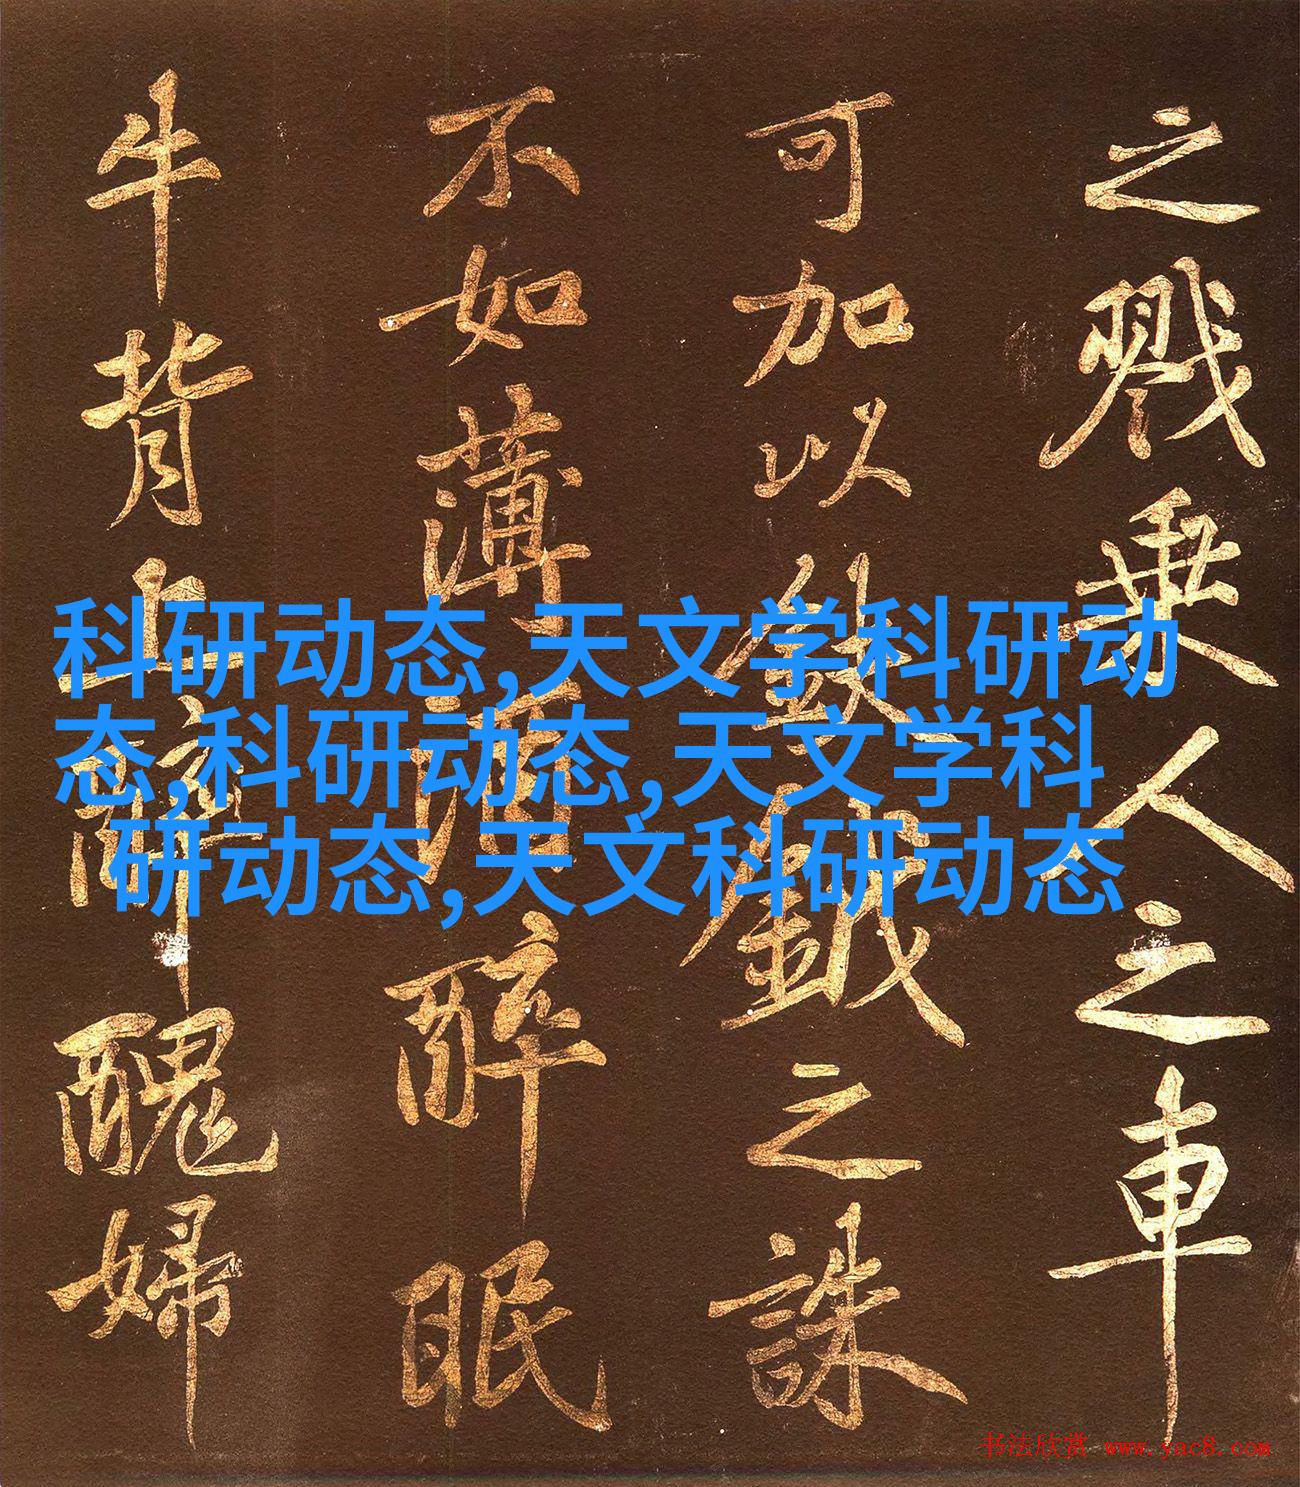 之戮乘人之車
可加以鈇鉞之誅
不如薄酒醉眠
牛背上醉醜婦
科研动态,天文学科研动
态,科研动态,天文学科
研动态,天文科研动态
书法欣赏 www.yac8.com